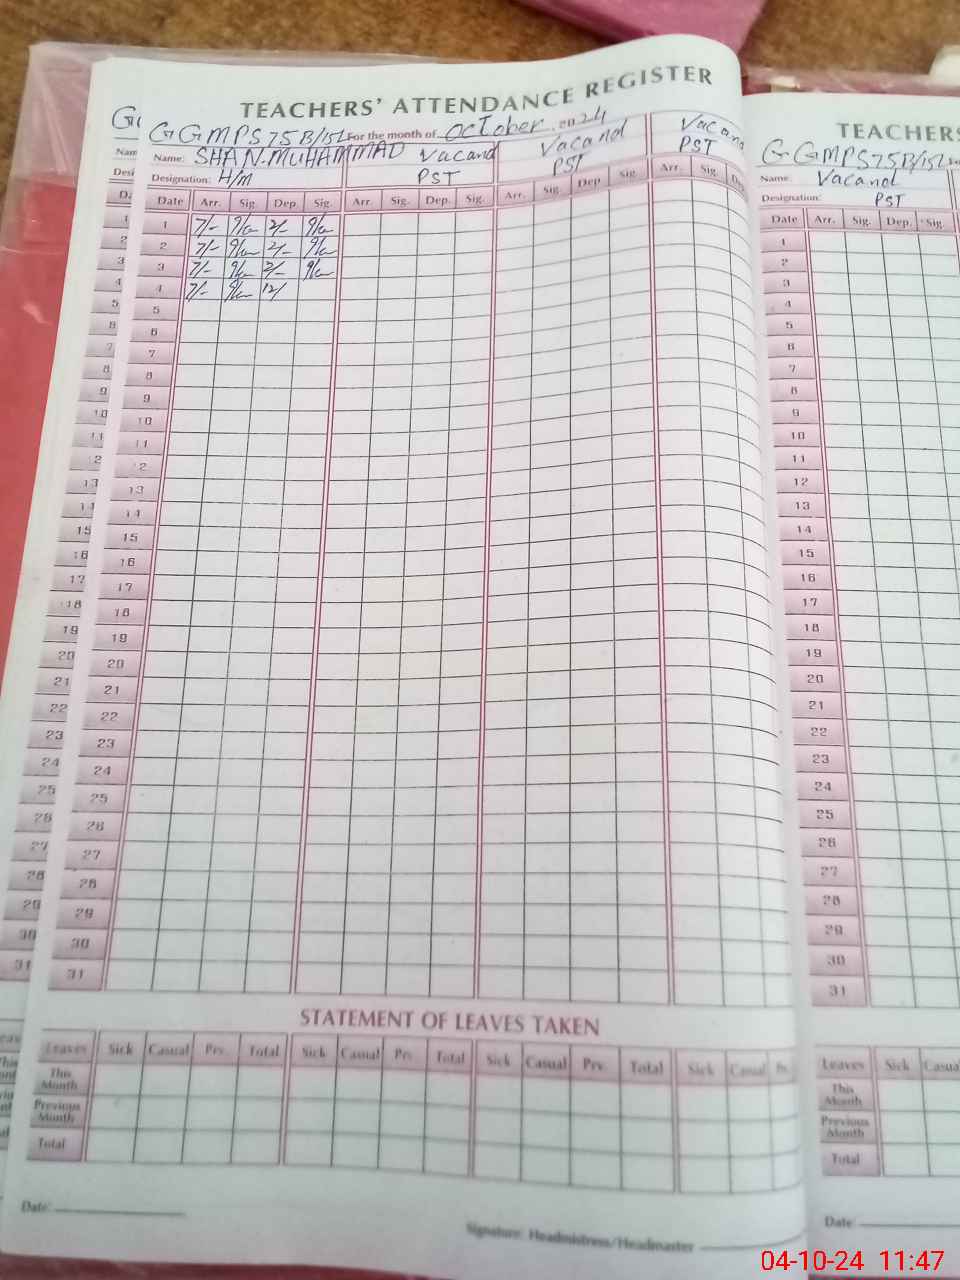 TEACHERS' ATTENDANCE REGISTER
GGMPS 75B/15L For the month of October 2024
Name: SHAN.MUHAMMAD Vacand Vacand Vacand
Designation: H/M PST PST PST
Date Arr. Sig. Dep. Sig. Arr. Sig. Dep. Sig. Arr. Sig. Dep. Sig. Arr. Sig. Dep.
1 7/- 2/-
2 7/- 2/-
3 7/- 2/-
4 7/- 12/
5
6
7
8
9
10
11
12
13
14
15
16
17
18
19
20
21
22
23
24
25
26
27
28
29
30
31
STATEMENT OF LEAVES TAKEN
Leaves Sick Casual Prv. Total Sick Casual Prv. Total Sick Casual Prv. Total Sick Casual Prv.
This Month
Previous Month
Total
Date:
Signature: Headmistress/Headmaster
TEACHERS
GGMPS 75B/15L
Name: Vacand
Designation: PST
Date Arr. Sig. Dep. Sig.
1
2
3
4
5
6
7
8
9
10
11
12
13
14
15
16
17
18
19
20
21
22
23
24
25
26
27
28
29
30
31
Leaves Sick Casual
This Month
Previous Month
Total
Date:
04-10-24 11:47